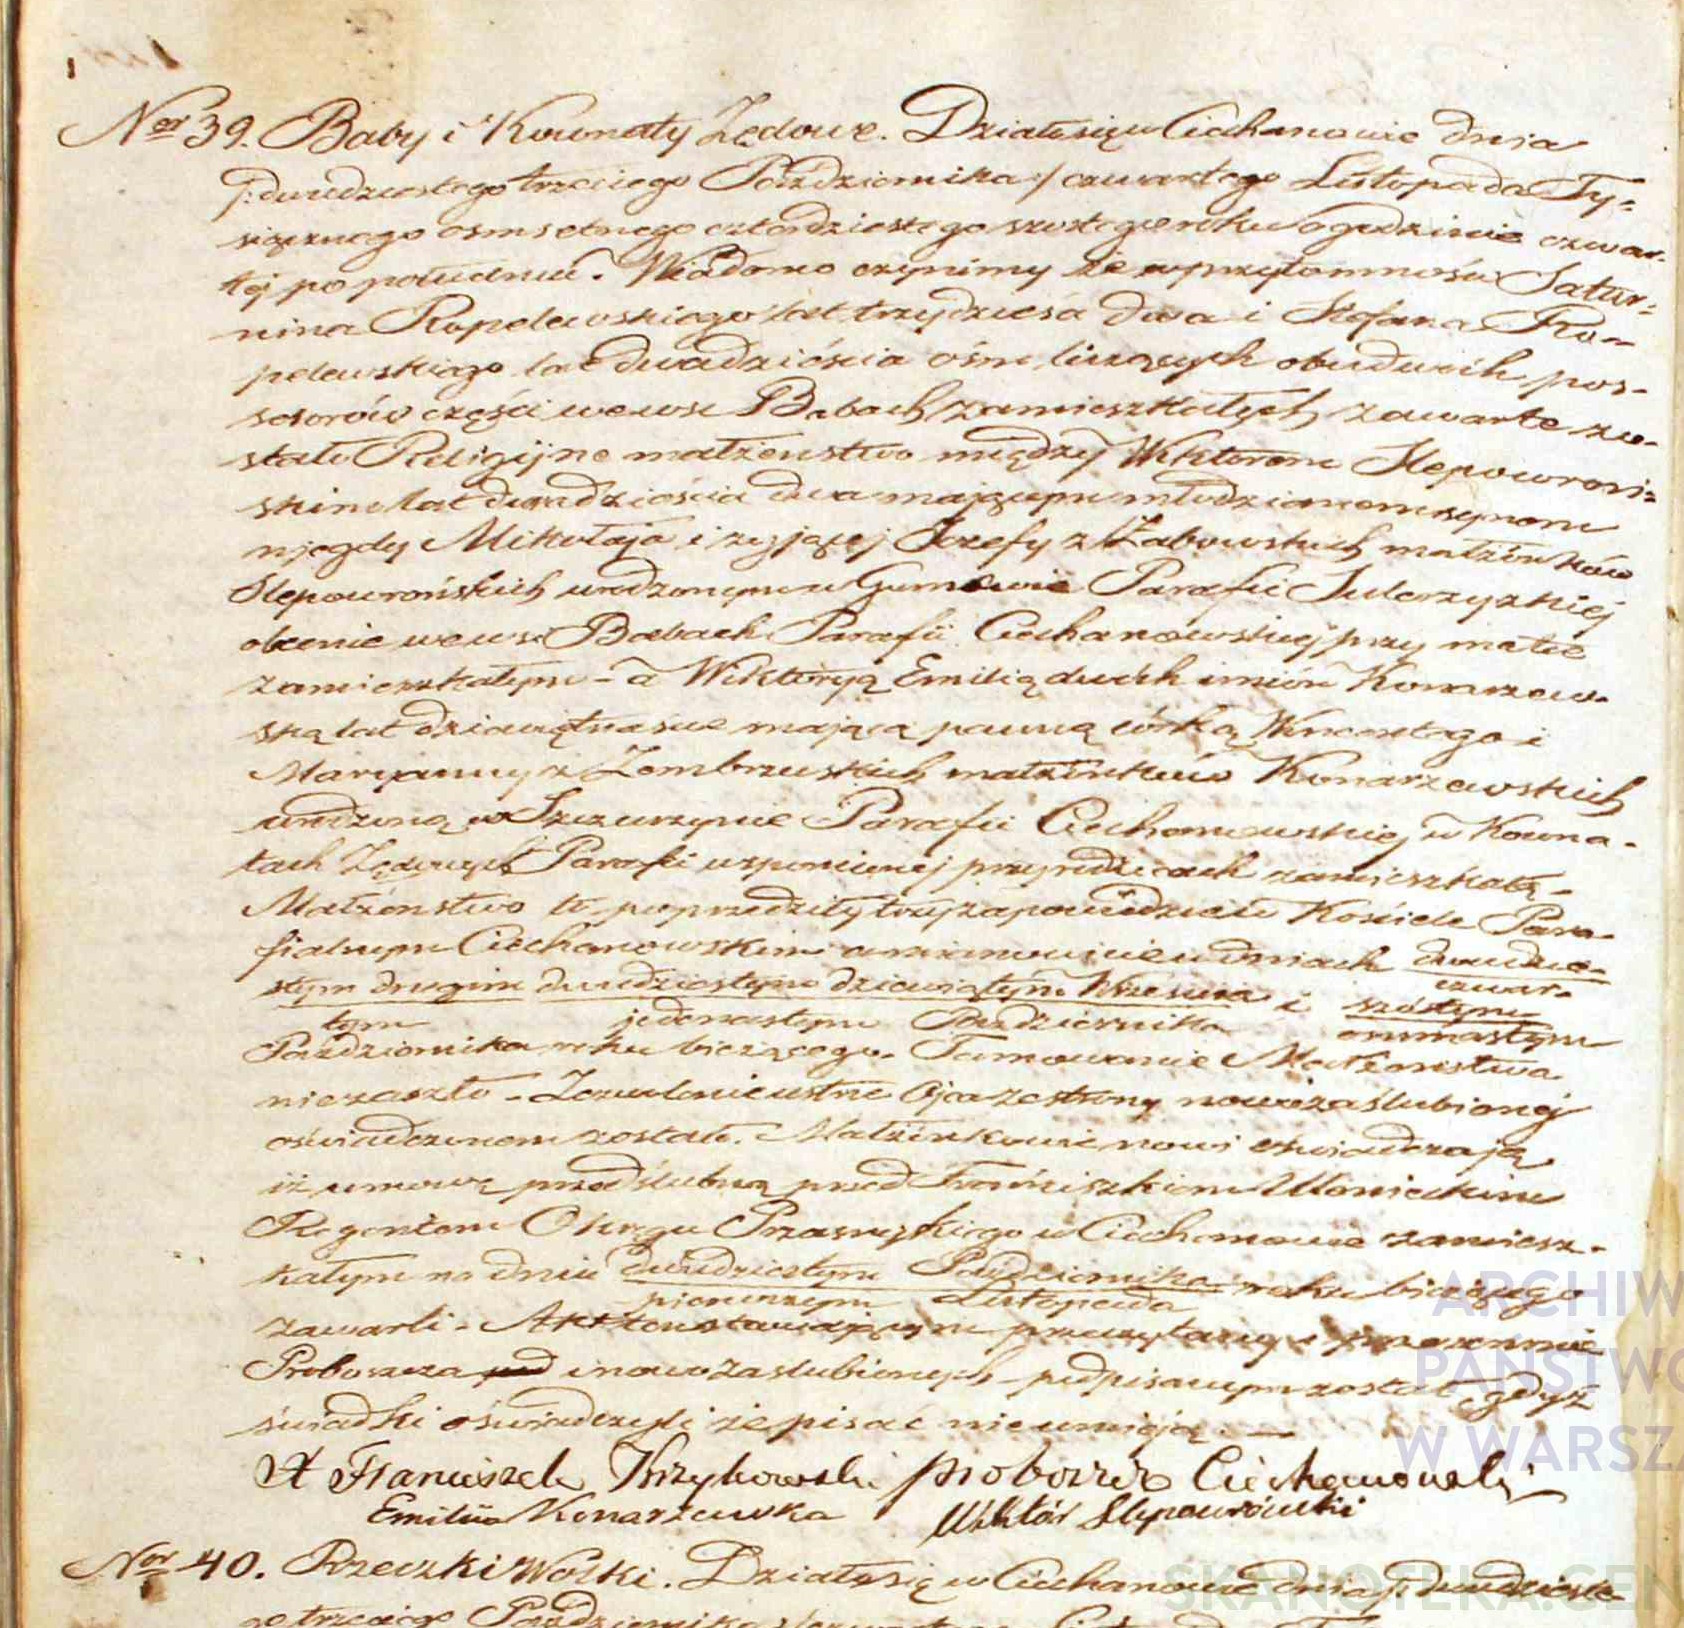 Ner 39. Baby i Kownaty Zędowe. Działo się w Ciechanowie dnia
/: dwudziestego trzeciego Pazdziernika :/ czwartego Listopada Ty-
siącznego osmsetnego czterdziestego szostego roku o godzinie czwar-
tej po południu. Wiadomo czynimy że w przytomności Satur-
nina Ropelewskiego lat trzydzieści dwa i Stefana Ro-
pelewskiego lat dwadzieścia ośm liczących obudwóch pos-
sesorów części we wsi Babach zamieszkałych zawarte zo-
stało Religijne małżeństwo między Wiktorem Slepowroń-
skim lat dwadzieścia dwa mającym młodzianem synem
niegdy Mikołaja i żyjącej Józefy z Żabowskich małżonków
Slepowrońskich urodzonym w Gumowie Parafii Sulerzyskiej
obecnie we wsi Babach Parafii Ciechanowskiej przy matce
zamieszkałym - a Wiktoryą Emilią dwóch imion Konarzew-
ską lat dziewiętnaście mającą panną córką Wincentego i
Maryanny z Zembrzuskich małżonków Konarzewskich
urodzoną w Szczurzynie Parafii Ciechanowskiej w Kowna-
tach Zędowych Parafii wspomnionej przy rodzicach zamieszkałą -
Małżeństwo to poprzedziły trzy zapowiedzie w Kościele Para-
fialnym Ciechanowskim a mianowicie w dniach dwudzie-
czwar-
stym drugim dwudziestym dziewiątym Września i szóstym
tym jedenastym Pazdziernika osmnastym
Pazdziernika roku bieżącego. Tamowanie Małżeństwa
nie zaszło - Zezwolenie ustne Ojca ze strony nowozaślubionej
oświadczonem zostało. Małżonkowie nowi oświadczają
iż umowę przedślubną przed Franciszkiem
Regentem Okręgu Przasnyskiego w Ciechanowie zamiesz-
kałym na dniu dwudziestym Pazdziernika roku bieżącego
pierwszym Listopada
zawarli - Akt ten stawającym przeczytany i przezemnie
Proboszcza pod i nowo zaslubionych podpisanym został gdyż
świadki oświadczyli że pisać nie umieją. —
X Franciszek Krzykowski proboszcz Ciechanowski
Emilija Konarzewska Wiktór Slepowróński
Nor 40. Rzeczki Wolki. Działo się w Ciechanowie dnia /: dwudzieste
go trzeciego Pazdziernika
ARCHIW
PAŃSTWO
W WARSZA
SKANOTEKA.GEN